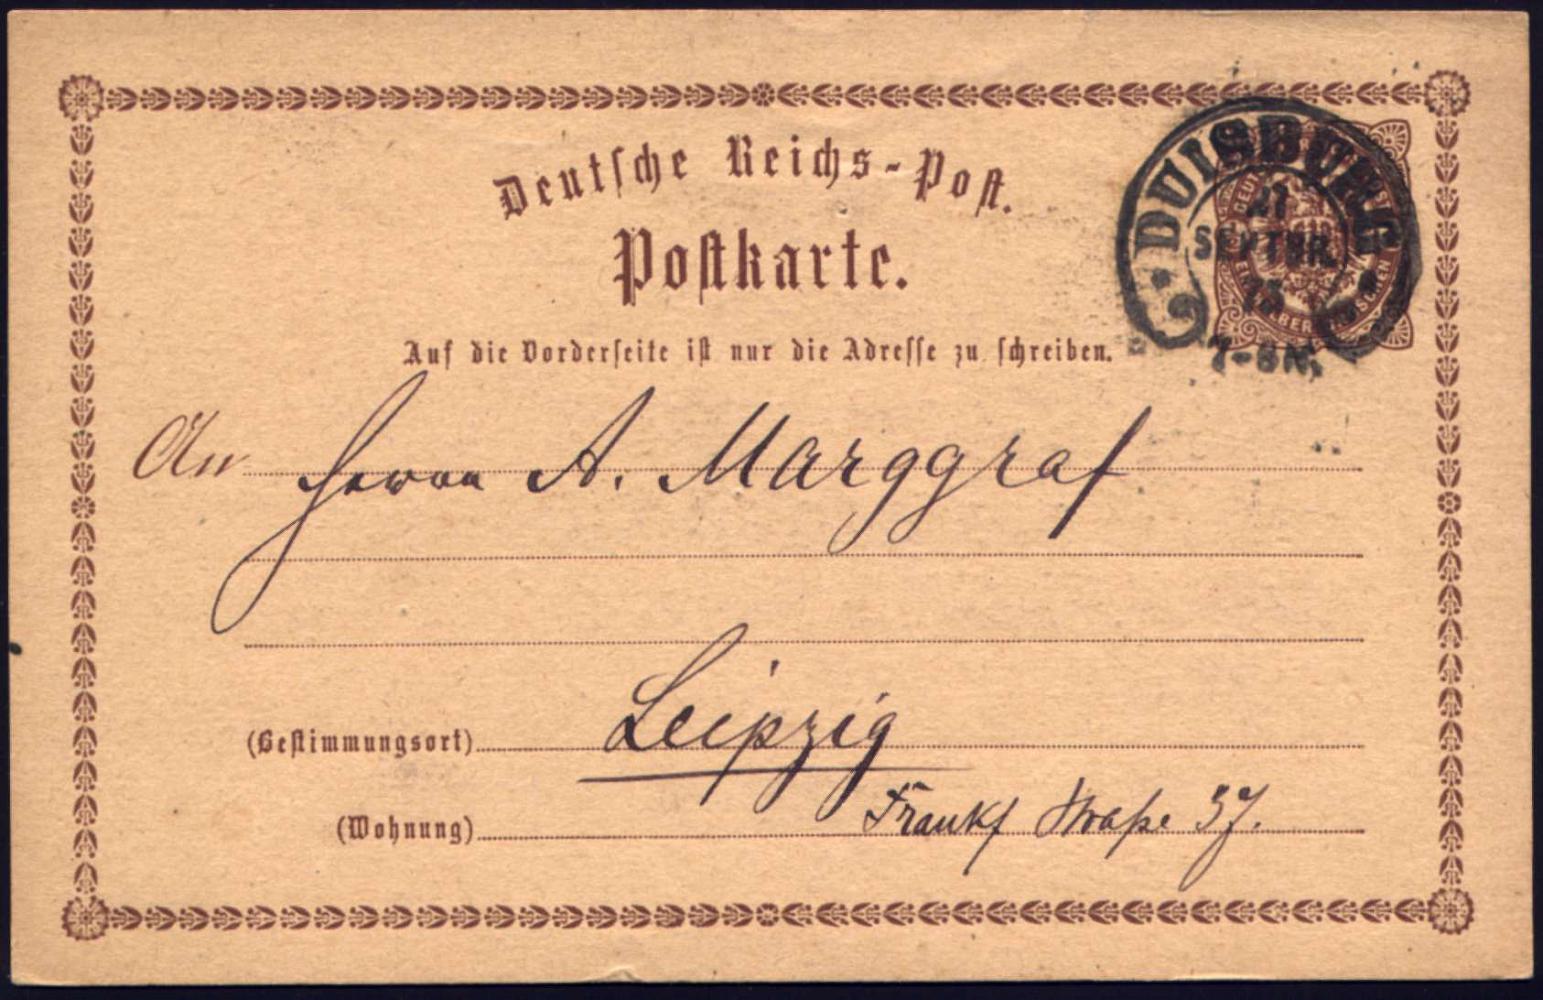 Deutsche Reichs-Post.
Postkarte.
DUISBURG
21
SEPTBR.
75
7-8N.
Auf die Vorderseite ist nur die Adresse zu schreiben.
An Herrn A. Marggraf
(Bestimmungsort) Leipzig
(Wohnung) Frankf Straße 37.